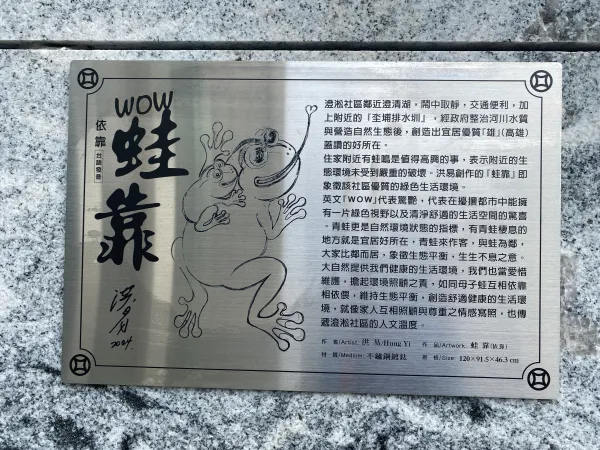 WOW
蛙靠
依靠
台語發音
洪易
2024
澄淞社區鄰近澄清湖，鬧中取靜，交通便利，加
上附近的「坔埔排水圳」，經政府整治河川水質
與營造自然生態後，創造出宜居優質「雄」(高雄)
蓋讚的好所在。
住家附近有蛙鳴是值得高興的事，表示附近的生
態環境未受到嚴重的破壞。洪易創作的「蛙靠」即
象徵該社區優質的綠色生活環境。
英文「WOW」代表驚艷，代表在擾攘都市中能擁
有一片綠色視野以及清淨舒適的生活空間的驚喜
。青蛙更是自然環境狀態的指標，有青蛙棲息的
地方就是宜居好所在，青蛙來作客，與蛙為鄰，
大家比鄰而居，象徵生態平衡，生生不息之意。
大自然提供我們健康的生活環境，我們也當愛惜
維護，擔起環境照顧之責，如同母子蛙互相依靠
相依偎，維持生態平衡，創造舒適健康的生活環
境，就像家人互相照顧與尊重之情感寫照，也傳
遞澄淞社區的人文溫度。
作 者/Artist: 洪 易/Hung Yi 作 品/Artwork: 蛙 靠(依靠)
材 質/Medium: 不鏽鋼鍍鈦 規 格/Size: 120×91.5×46.3 cm